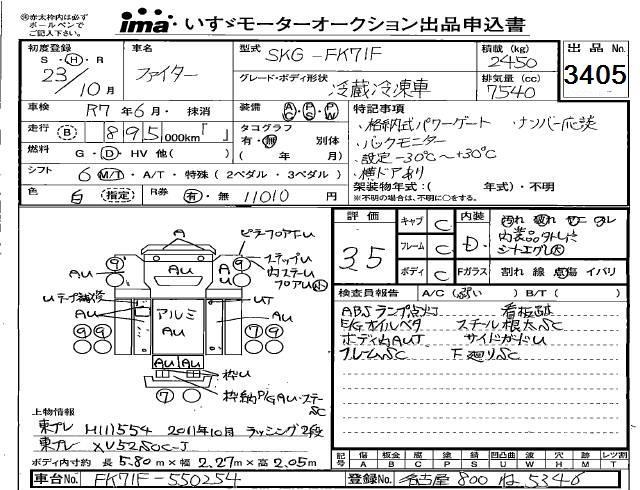 ㊟赤太枠内は必ず
ボールペンで
ご記入下さい。
ima・いすゞモーターオークション出品申込書
初度登録
S・H・R
23/10月
車名
ファイター
型式
SKG-FK71F
積載 (kg)
2450
グレード・ボディ形状
冷蔵冷凍車
排気量 (cc)
7540
出品No.
3405
車検
R7年6月・抹消
装備
A/C P/S P/W
特記事項
・格納式パワーゲート ・ナンバー応談
・バックモニター
・設定-30℃~+30℃
・横ドアあり
走行
B 895,000km『 』
タコグラフ
有・無 別体
( 年 月)
燃料
G・D・HV 他( )
シフト
6 M/T・A/T・特殊 (2ペダル・3ペダル)
架装物年式:( 年式)・不明
※不明の場合は、不明に○をする。
色
白 (指定)
R券
有・無 11010円
評価
3.5
キャブ C
フレーム C
ボディ C
内装
D
Fガラス
割れ 線 点傷 イバリ
検査員報告 A/C( ) B/T( )
ABSランプ点灯
E/Gオイルベタ スチール根太SC
ボディ内AUT サイドガードU
フレームSC 下廻りSC
A
ピラーフロア下U
ステップU
内ステーU
フロアU小
AU
Uテープ補修
UT
アルミ
AU
AU AU
枠U
枠 格納P/G AU・ステー
SC
9 9
9 9
7 9
7
上物情報
東プレ H111554 2011年10月 ラッシング2段
東プレ XV52SOC-J
ボディ内寸約 長5.80m×幅2.27m×高2.05m
記号
傷 A
板金 B
腐 C
サビ S
凹凸曲 U
塗装 W
穴 H
跡 M
ムラ T
レツ割
車台No. FK71F-550254
登録No. 名古屋 800 ね 5346